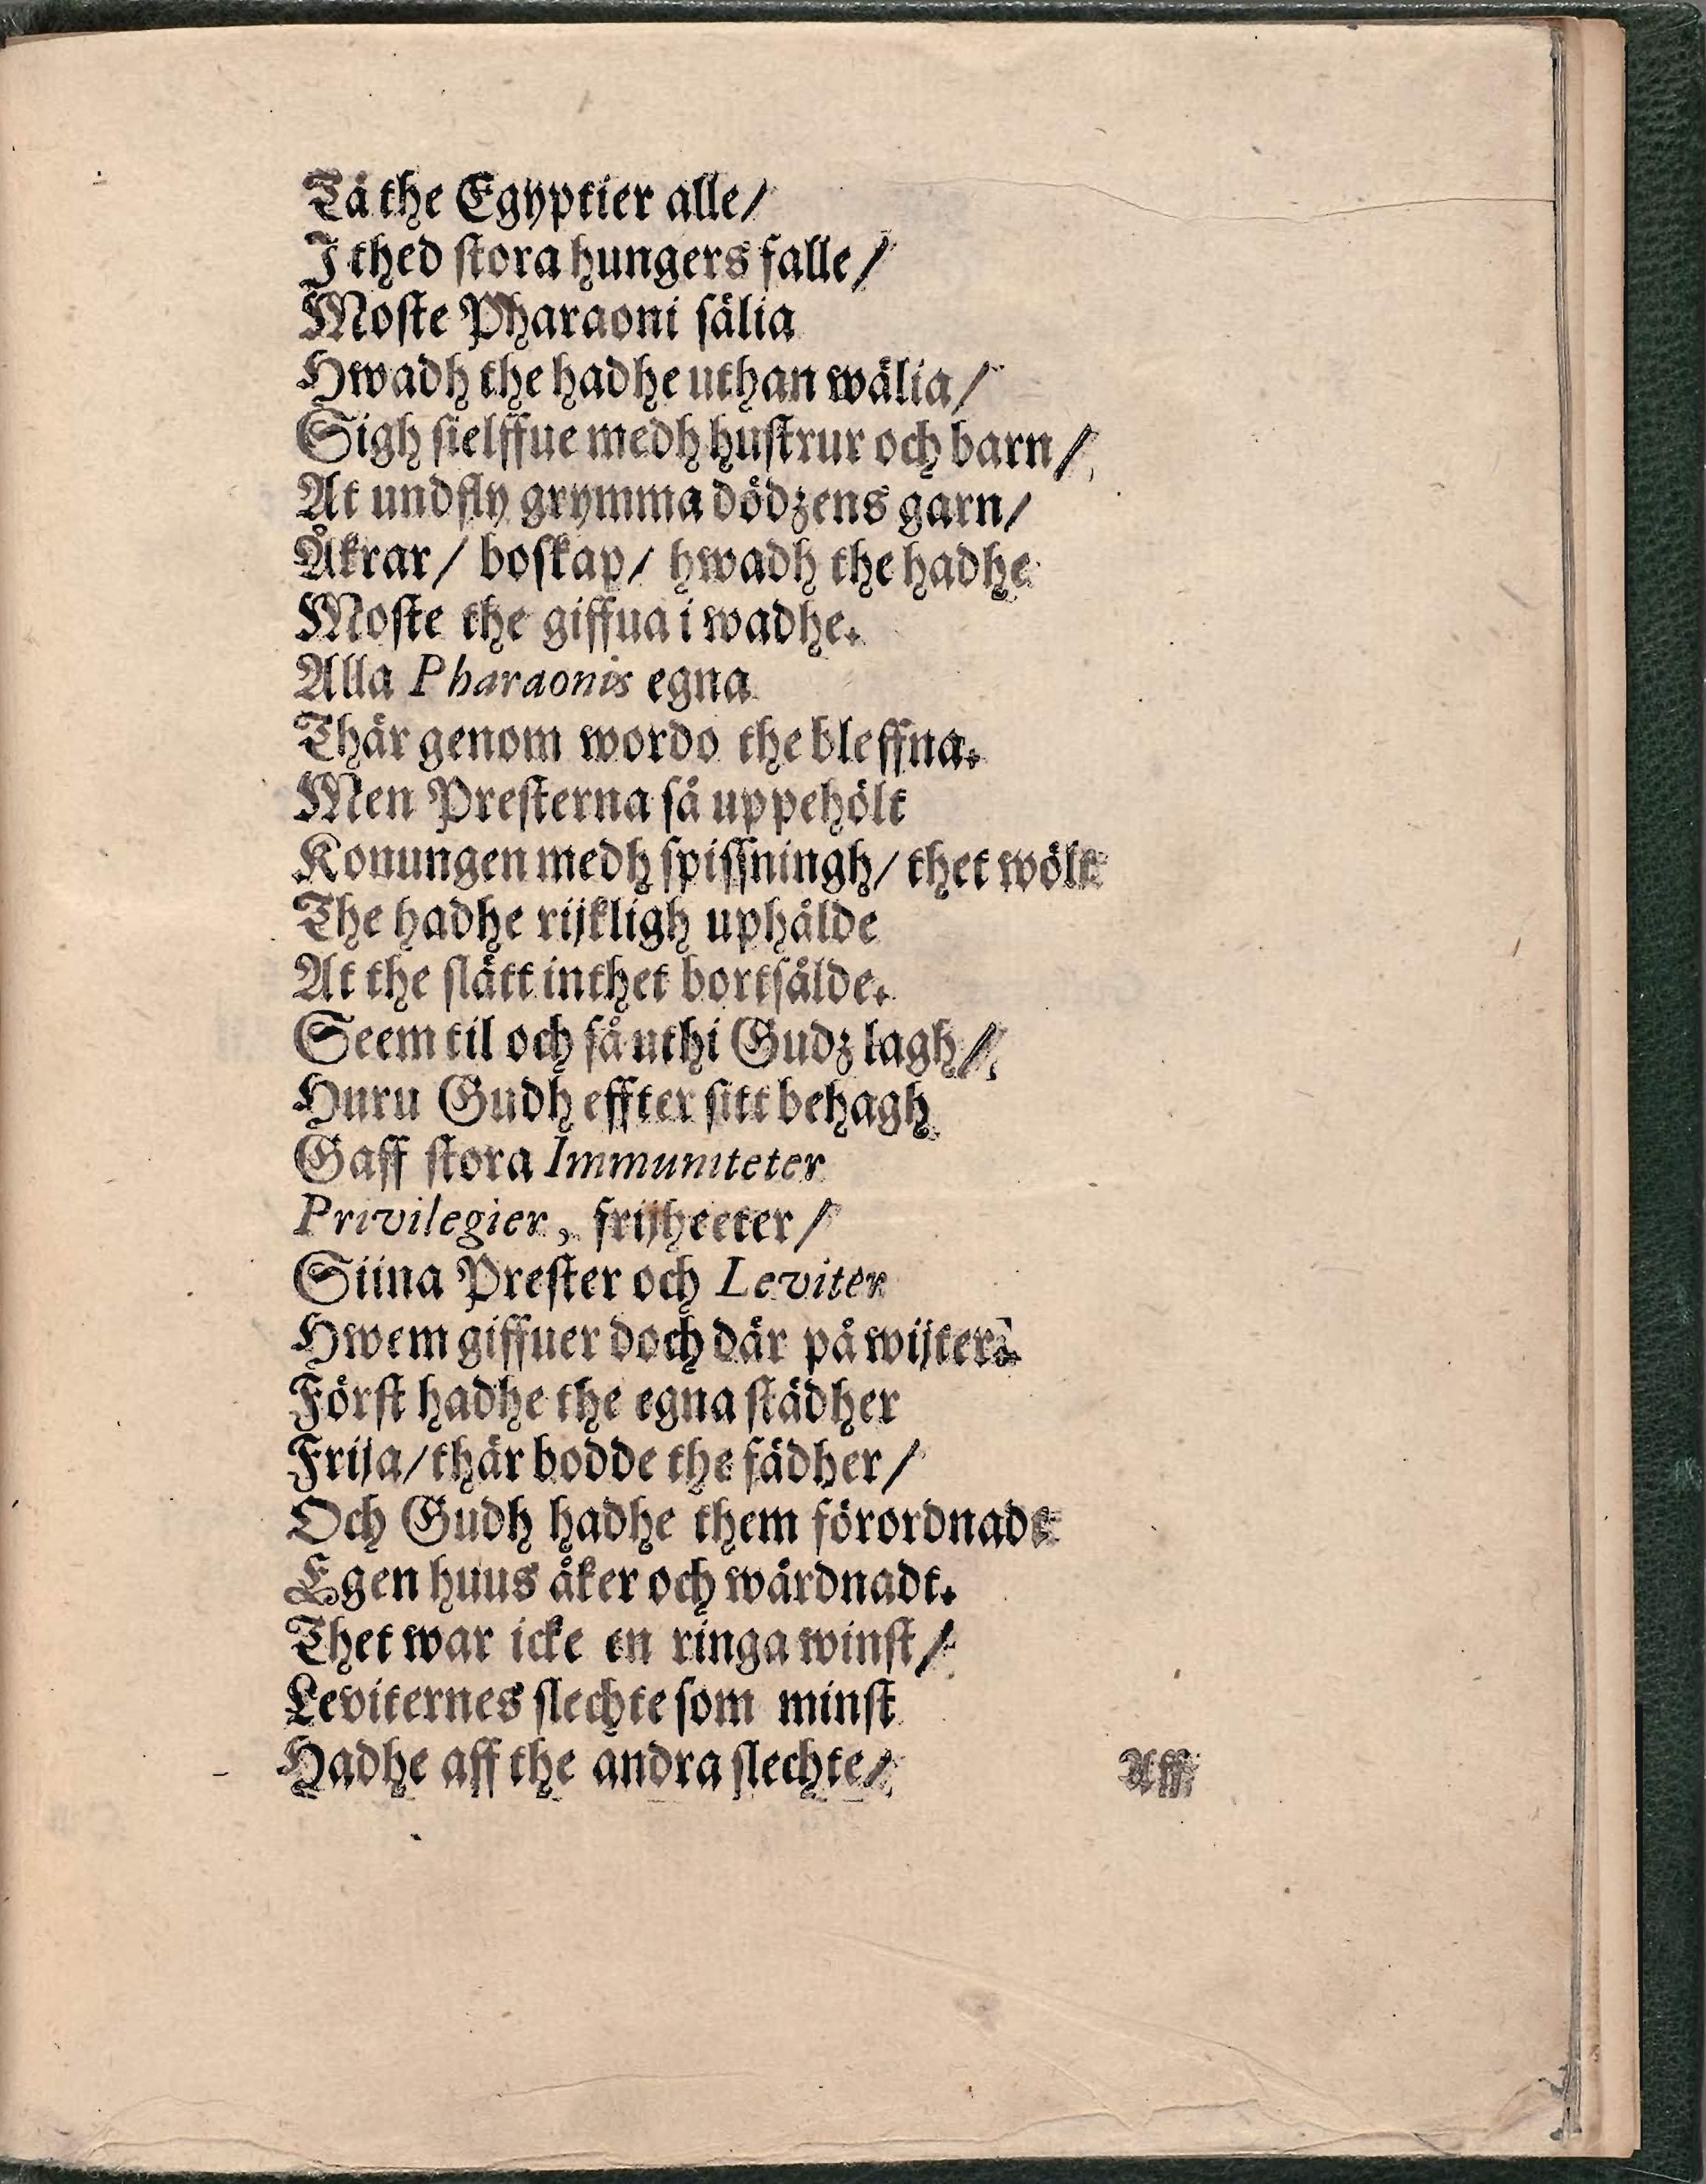 Tå the Egyptier alle/
I thed stora hungers falle/
Moste Pharaoni sälia
Hwadh the hadhe uthan wälia/
Sigh sielffue medh hustrur och barn/
At undfly grymma dödzens garn/
Åkrar/ boskap/ hwadh the hadhe
Moste the giffua i wadhe.
Alla Pharaonis egna
Thär genom wordo the bleffna.
Men Presterna så uppehölt
Konungen medh spissningh/ thet wölt
The hadhe rijkligh uphålde
At the slätt inthet bortsålde.
Seem til och så uthi Gudz lagh/
Huru Gudh effter sitt behagh
Gaff stora Immuniteter
Privilegier, frijheeter/
Siina Prester och Leviter
Hwem giffuer doch där på wijter?
Först hadhe the egna städher
Frija/ thär bodde the fädher/
Och Gudh hadhe them förordnadt
Egen huus åker och wårdnadt.
Thet war icke en ringa winst/
Leviternes slechte som minst
Hadhe aff the andra slechte/
Aff